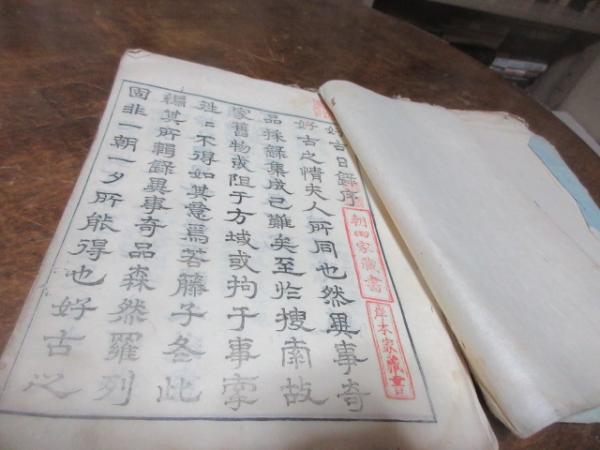 好古日録序
好古之情夫人所同也然異事奇
品採録集成已難矣至於搜索故
家舊物或阻于方域或拘于事牽
往々不得如其意焉若藤子冬此
編其所輯録異事奇品森然羅列
固非一朝一夕所能得也好古之
朝田家藏書
岸本家藏書